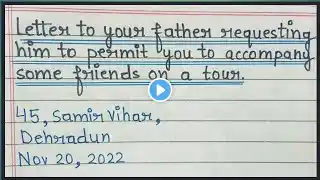 Letter to your father requesting
him to permit you to accompany
some friends on a tour.
45, Samir Vihar,
Dehradun
Nov 20, 2022